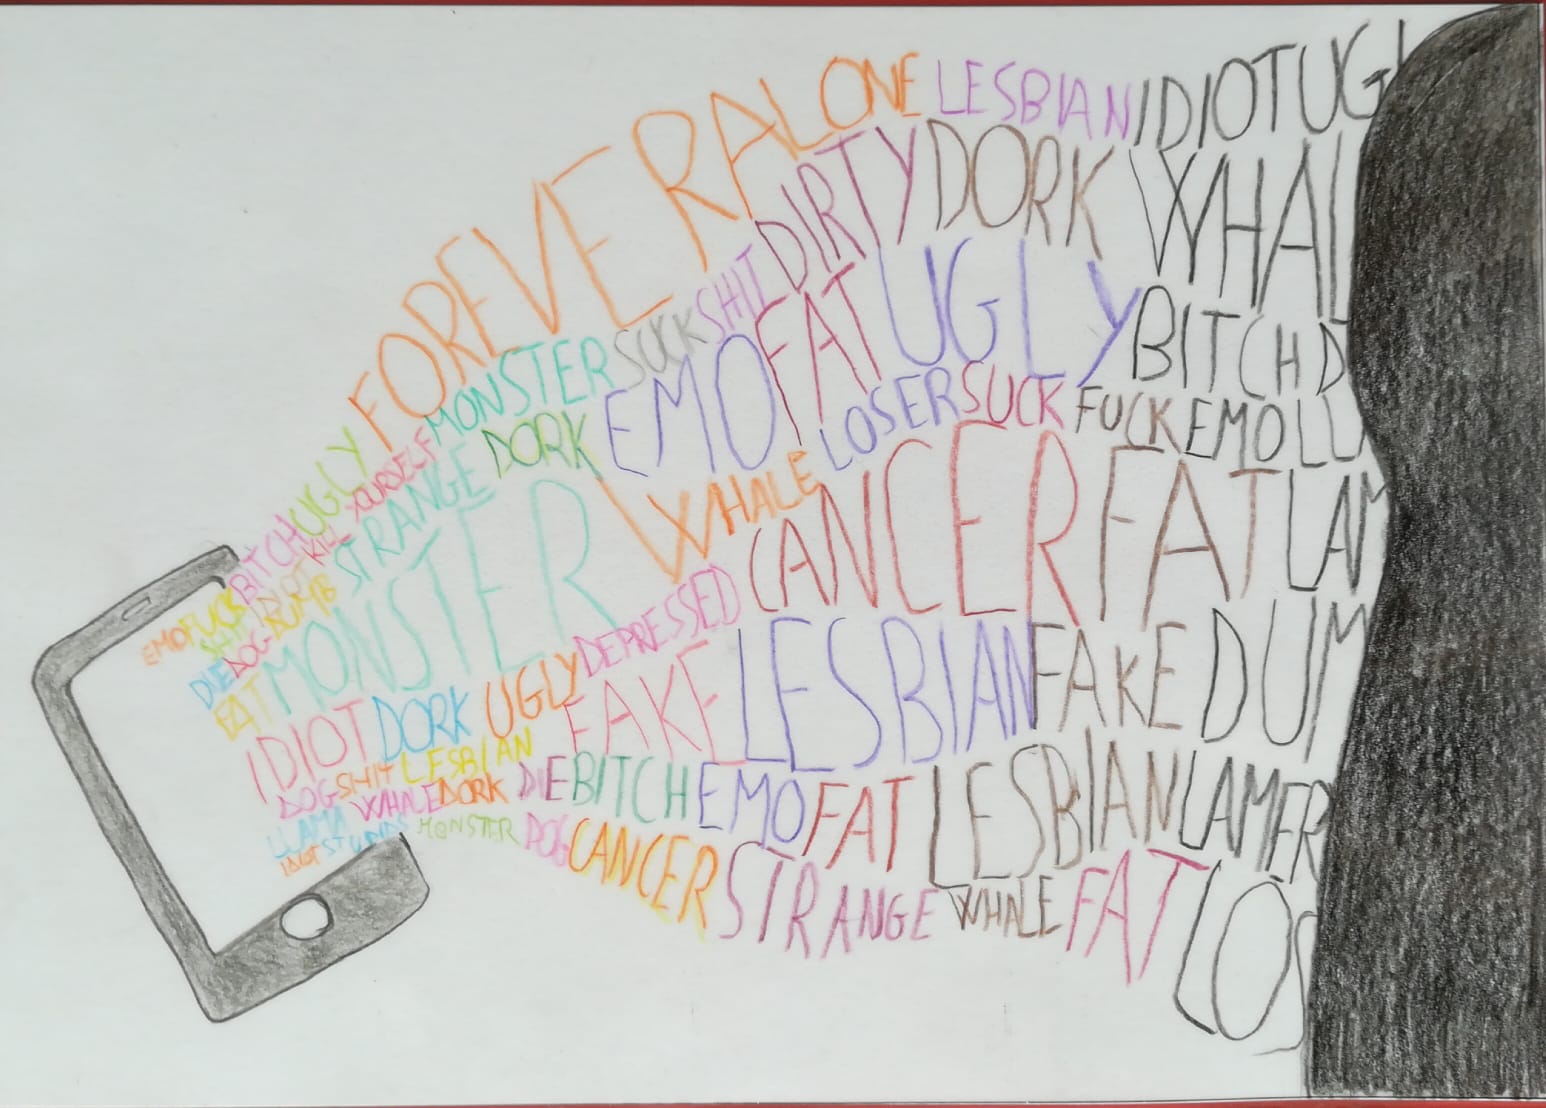 FOREVER ALONE LESBIAN IDIOT UGL
DIRTY DORK WHAL
BITCH UGLY MONSTER SUCK SHIT FAT UGLY BITCH D
KILL YOURSELF
STRANGE DORK EMO LOSER SUCK FUCK EMO LU
EMO FUCK
SHIT
DIE DOG DUMB
FAT MONSTER WHALE CANCER FAT LAM
IDIOT DORK UGLY DEPRESSED
FAKE LESBIAN FAKE DUM
DOG SHIT LESBIAN
WHALE DORK DIE BITCH EMO FAT LESBIAN LAMER
LLAMA
IDIOT STUPID MONSTER DOG CANCER STRANGE WHALE FAT LOS